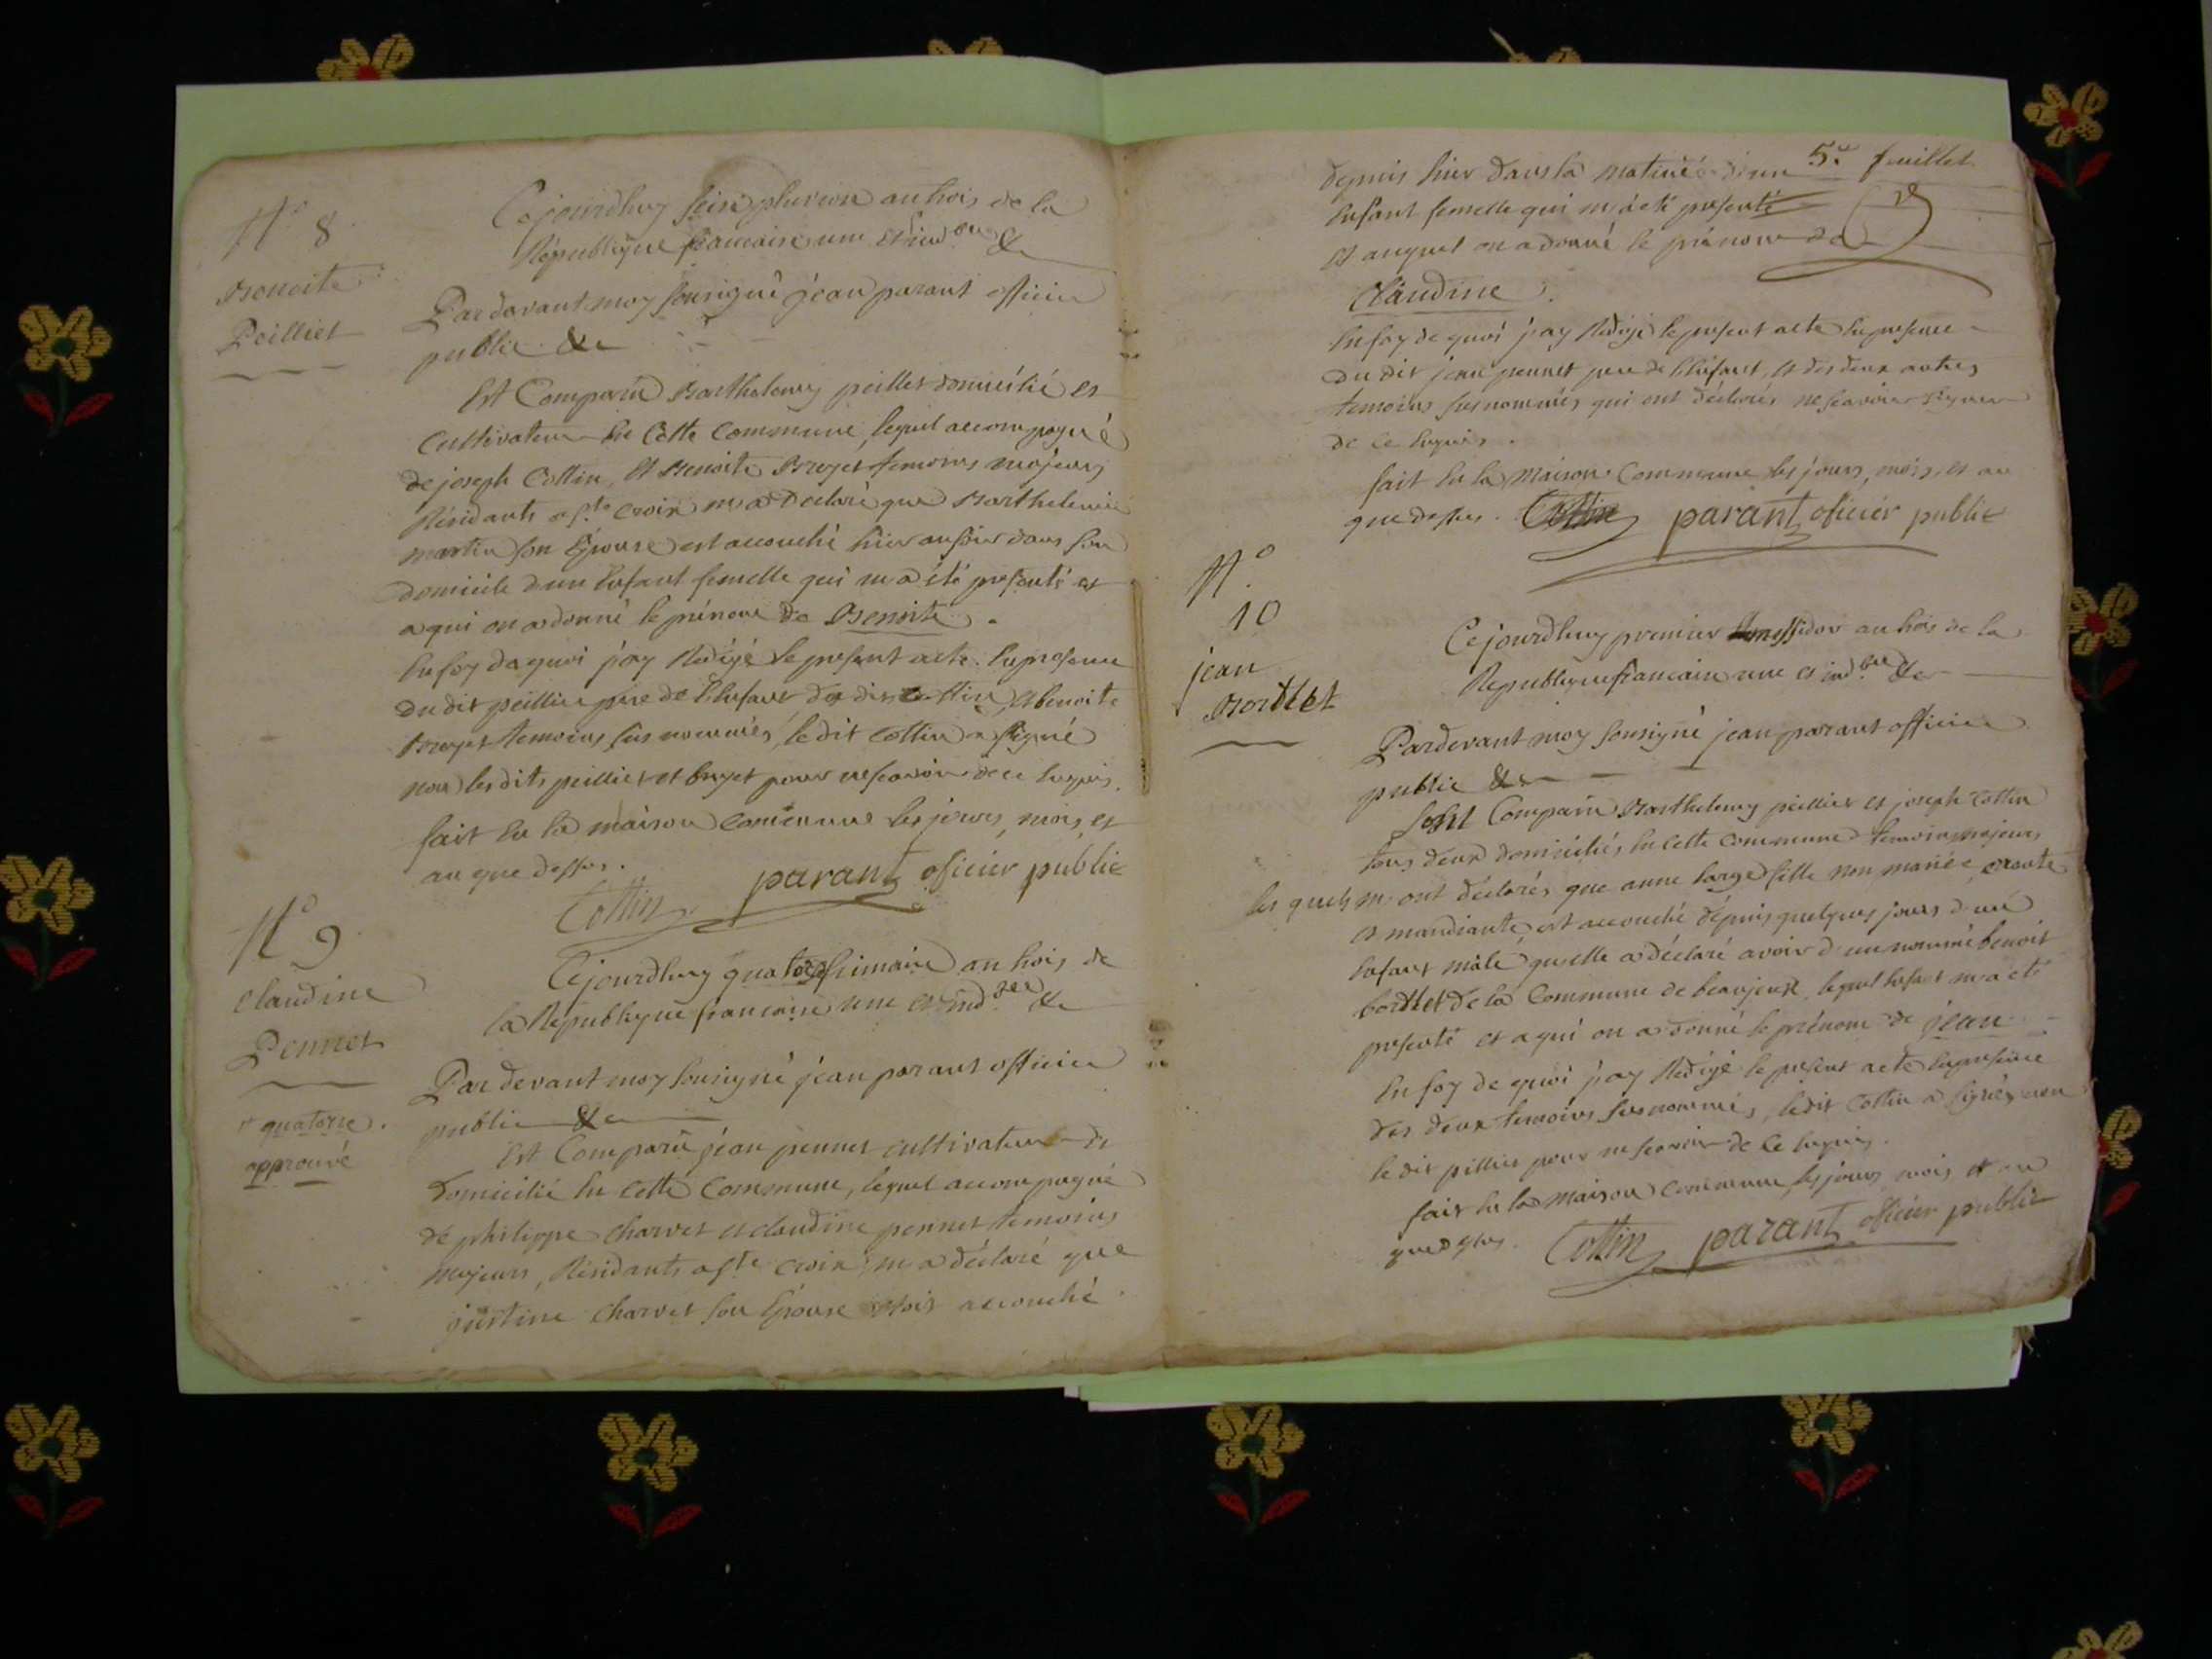 N° 8
Benoite
Peilliet
Cejourdhuy seize pluviose an trois de la
République francaise une et ind.ble &c
Pardevant moy sousigné jean parant officier
public &c
Est Comparü Barthelemy peillet domicilié et
Cultivateur en Cette Commune, lequel accompagné
de joseph Cottin, et Benoite Broyet temoins majeurs
Résidants a ste croix m'a Declaré que Barthelemie
martin son Epouse est accouché hier au soir dans son
domicile d'un Enfant femelle qui m'a été presenté et
a qui on a donné le prénom de Benoite.
En foy de quoi j'ay Redigé le present acte. En presence
du dit peillier père de l'Enfant du dit Cottin et benoite
Broyet temoins sus nommés, le dit Cottin a signé
non les dits peillier et broyet pour ne scavoir de ce Enquis.
fait En la maison Commune les jours, mois, et
an que dessus.
Cottin parant oficier public
N° 9
Claudine
Pennet
+ quatorze.
approuvé
Cejourdhuy quatorze frimaire an trois de
la République francaise une et ind.ble &c
Par devant moy sousigné jean parant officier
public &c
Est Comparü jean pennet cultivateur &
Domicilié En Cette Commune, lequel accompagné
de philippe Charvet et claudine pennet temoins
majeurs, Résidants a ste croix, m'a déclaré que
justine Charvet son Epouse etoit accouché
5.e feuillet
depuis hier dans la matinée d'un
Enfant femelle qui m'a été presenté
et auquel on a donné le prénom de
Claudine.
En foy de quoi j'ay Redigé le present acte En presence
du dit jean pennet pere de l'Enfant, et des deux autres
temoins susnommés qui ont déclarés ne scavoir signer
de ce Enquis.
fait En la Maison Commune les jours, mois, et an
que dessus. Cottin parant oficier public
N°
10
jean
Borttet
Cejourdhuy premier messidor an trois de la
République francaise une et ind.ble &c
Pardevant moy sousigné jean parant officier
public &c
Sont Comparü Barthelemy peillier et joseph Cottin
tous deux domiciliés En Cette Commune temoins majeurs
les quels m'ont déclarés que anne large fille non mariée,
et mandiante est accouché dépuis quelques jours d'un
Enfant mâle qu'elle a déclaré avoir d'un nommé benoit
borttet de la Commune de beaujeux, lequel Enfant m'a eté
presenté et a qui on a donné le prénom de jean
En foy de quoi j'ay Redigé le present acte En presence
des deux temoins susnommés, le dit Cottin a signé, non
le dit pillier pour ne scavoir de ce Enquis.
fait En la Maison Commune les jours, mois et an
que dessus. Cottin parant oficier public